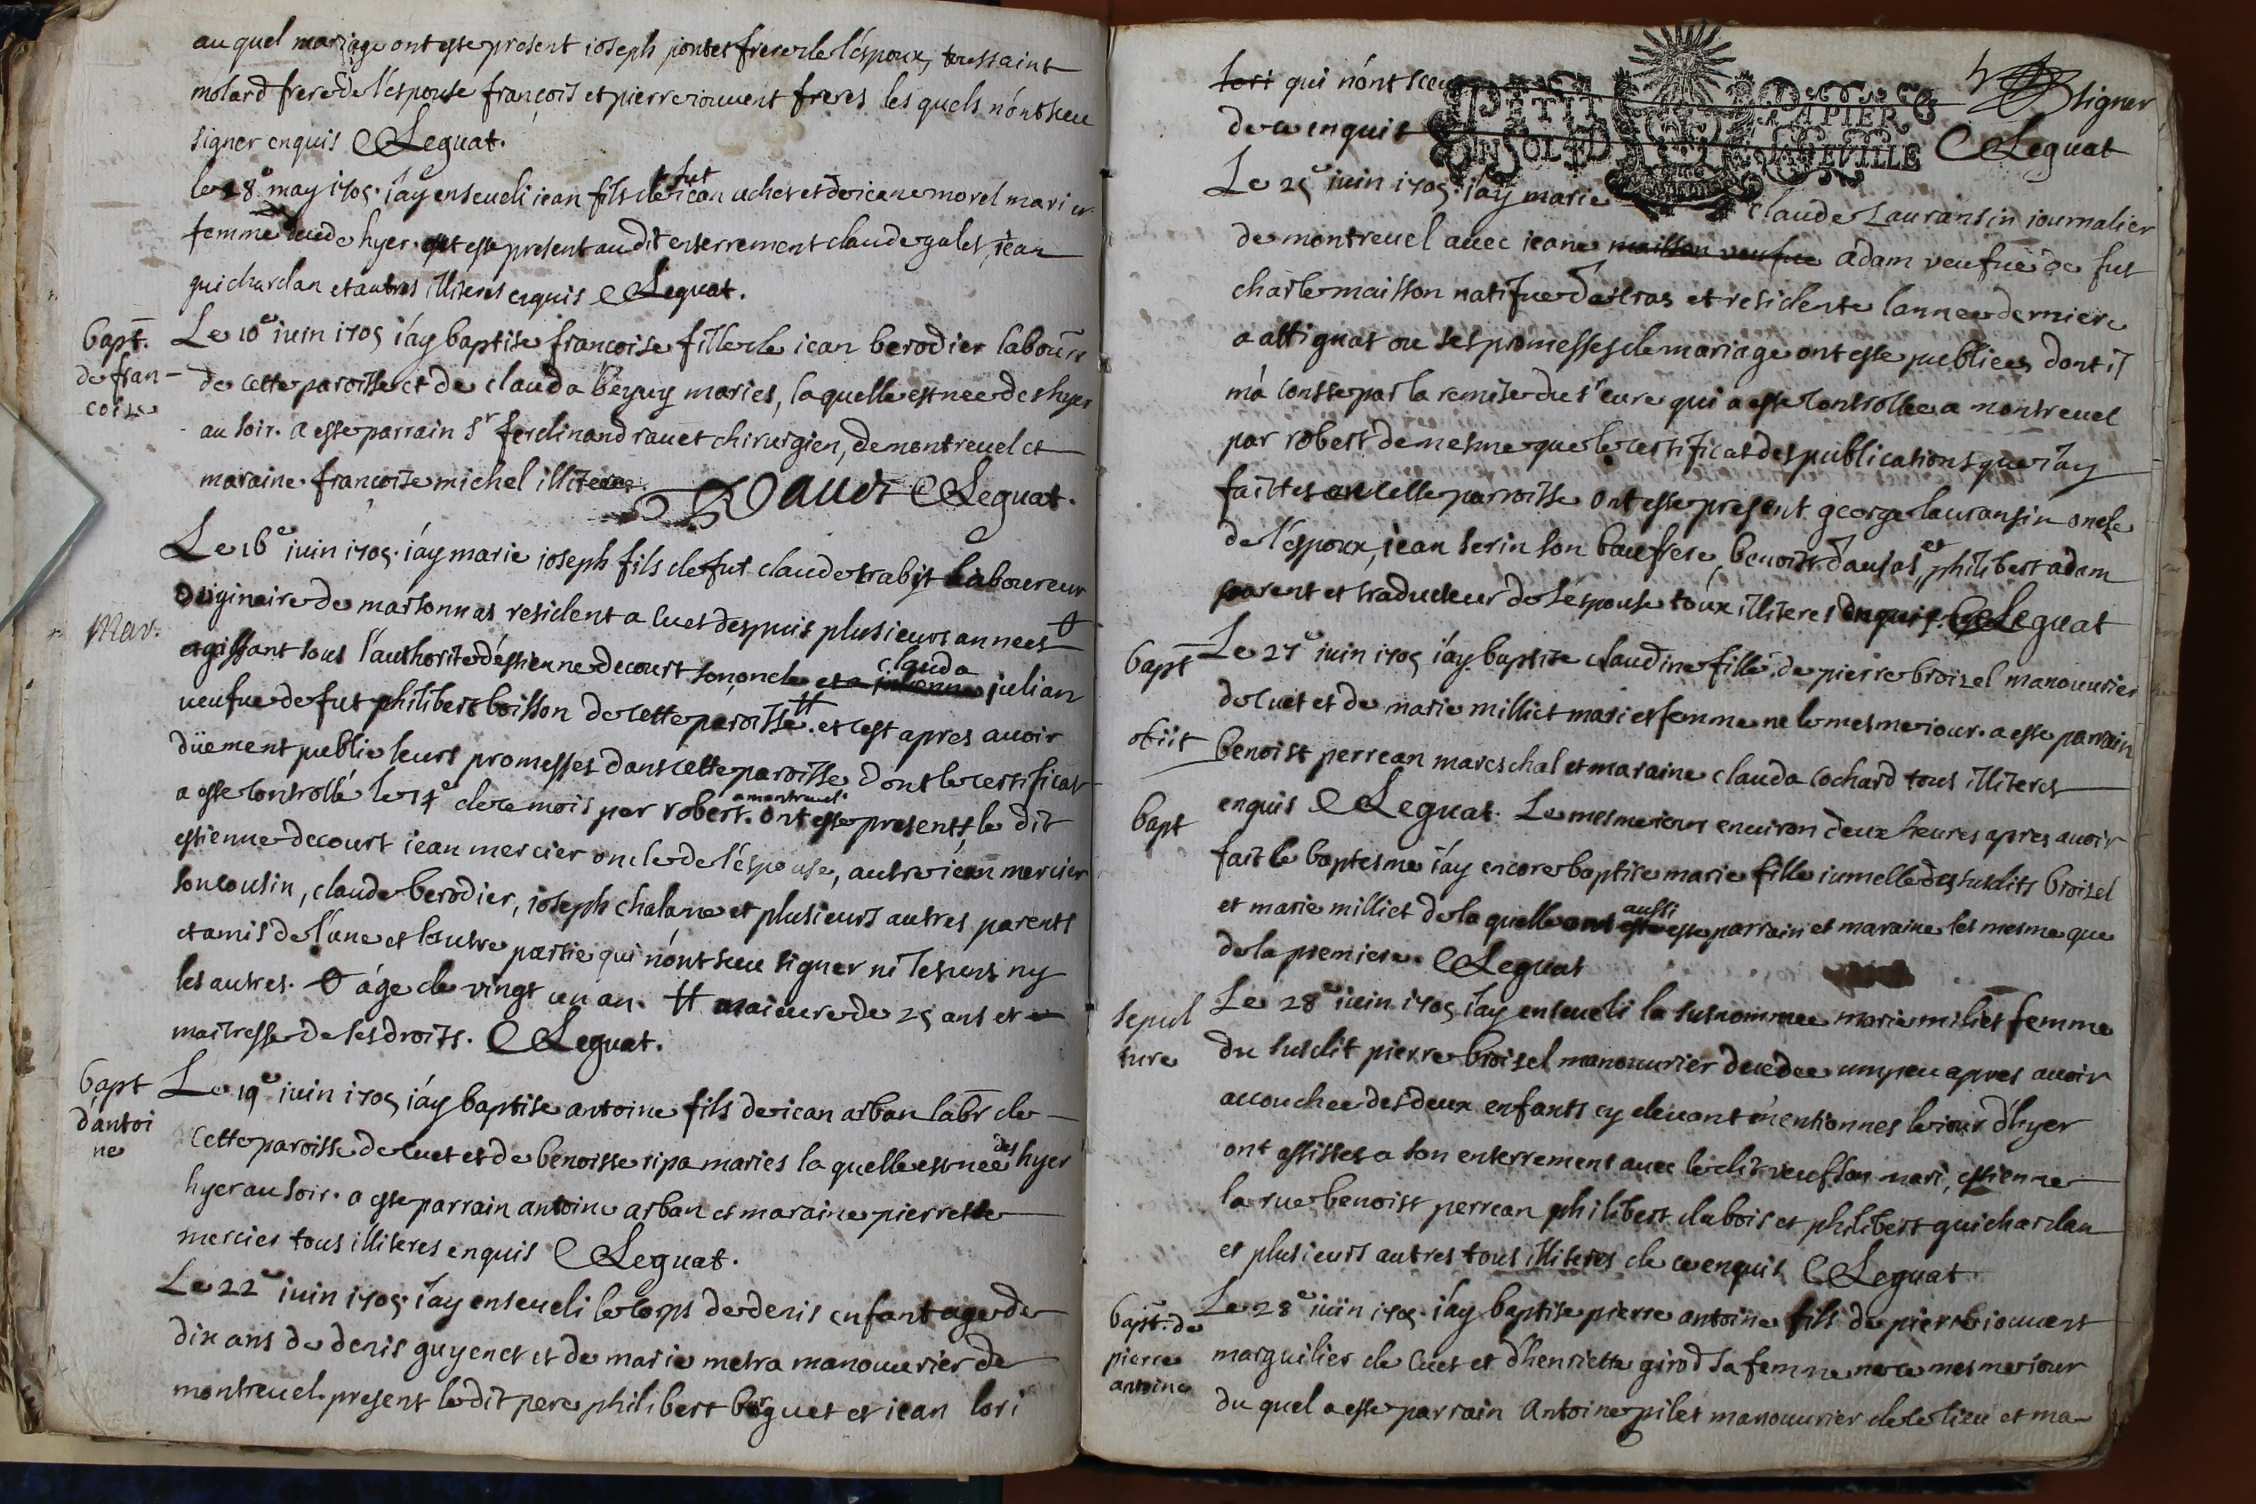 au quel mariage ont esté present ioseph pontet frere de l'espoux, toussaint
molard frere de l'espouse françois et pierre iouuent freres les quels n'ont sceu
signer enquis Leguat.
le 28e may 1705. i'ay enseueli iean fils de fut iean uchet et de ieane morel mari et
femme decede hyer. ont esté present au dit enterrement claude galet, iean
guichardan et autres illiteres enquis Leguat.
bapt.
de fran-
coise
Le 10e iuin 1705 i'ay baptise francoise fille de iean berodier labour
de cette paroisse et de clauda beyuy maries, la quelle est nee des hyer
au soir. a esté parrain Sr ferdinand rauet chirurgien, de montreuel et
maraine françoise michel illiteree. Rauet Leguat.
Mar.
Le 16e iuin 1705. i'ay marie ioseph fils de fut claude trabyt laboureur
originaire de marsonnas resident a cuet despuis plusieurs annees
agissant sous l'authorité d'estienne decourt son oncle et a julienne clauda julian
ueufue de fut philibert boisson de cette paroisse H. et c'est apres auoir
düement publie leurs promesses dans cette paroisse dont le certificat
a esté controllé le 14e de ce mois par robert. a montreuel. ont esté presents le dit
estienne decourt iean mercier oncle de l'espouse, autre iean mercier
son cousin, claude berodier, ioseph chalane et plusieurs autres parents
et amis de l'une et l'autre partie qui n'ont sceu signer ni les uns ny
les autres. age de vingt un an. H maieure de 25 ans et
maitresse de ses droits. Leguat.
bapt
d'antoi
ne
Le 19e iuin 1705 i'ay baptise antoine fils de iean arban labr de
cette paroisse de cuet et de benoisse ripa maries la quelle est nee des hyer
hyer au soir. a esté parrain antoine arban et maraine pierrette
mercier tous illiteres enquis Leguat.
Le 22e iuin 1705. i'ay enseueli le corps de denis enfant age de
dix ans de denis guyenet et de marie metra manouurier de
montreuel. present le dit pere philibert boguet et iean lori
lori qui n'ont sceu signer
de ce enquis Leguat
PETIT PAPIER
UN SOL LA FEUILLE
Le 25e iuin 1705. i'ay marie claude Lauransin iournalier
de montreuel auec ieane maisson veufue adam veufue de fut
charle maisson natifue d'astras et residente l'annee derniere
a attignat ou ses promesses de mariage ont esté publiees dont il
m'a consté par la remise du Sr cure qui a esté controllee a montreuel
par robert de mesme que le certificat des publications que i'ay
faittes en cette paroisse ont esté present george lauransin oncle
de l'espoux, iean serin son beaufrere, benoist dausat, et philibert adam
parent et traducteur de l'espouse tous illiteres enquis. Leguat
bapt
obiit
Le 27e iuin 1705 i'ay baptise claudine fille de pierre broisel manouurier
de cuet et de marie milliet mari et femme ne le mesme iour. a esté parrain
benoist perrean mareschal et maraine clauda cochard tous illiteres
bapt
enquis Leguat. Le mesme iour enuiron deux heures apres auoir
fait le baptesme i'ay encore baptise marie fille iumelle des susdits broisel
et marie milliet de la quelle ont esté aussi esté parrain et maraine les mesme que
de la premiere. Leguat
sepul
ture
Le 28e iuin 1705 i'ay enseueli la susnommee marie miliet femme
du susdit pierre broisel manouurier decedee un peu apres auoir
accouchee des deux enfants cy deuant mentionnes le iour d'hyer
ont assistes a son enterrement auec le dit veuf son mari, estienne
la rue benoist perrean philibert dubois et philibert guichardan
et plusieurs autres tous illiteres de ce enquis Leguat
bapt. de
pierre
antoine
Le 28e iuin 1705. i'ay baptise pierre antoine fils de pierre iouuent
marguilier de cuet et d'henriette girod sa femme ne ce mesme iour
du quel a esté parrain Antoine pilet manouurier de ce lieu et ma-